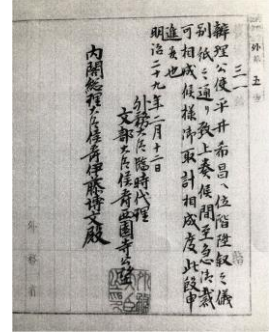 三一
辨理公使平井希昌ヘ位階陞叙之儀
別紙之通リ致上奏候間至急御裁
可相成候様御取計相成度此段申
進候也
明治二十九年二月十二日
外務大臣臨時代理
文部大臣侯爵西園寺公望
内閣総理大臣侯爵伊藤博文殿
外務省